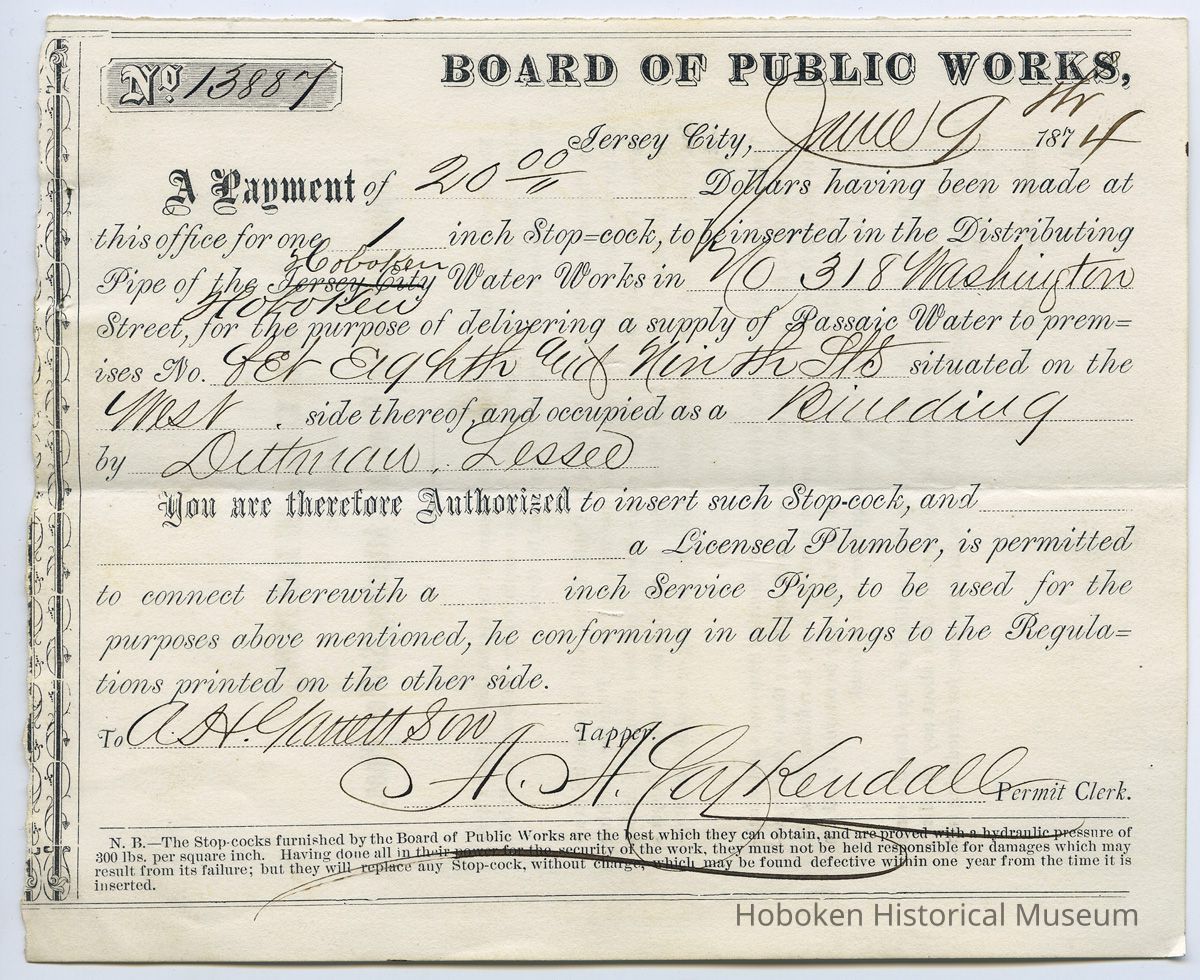 No. 13887
BOARD OF PUBLIC WORKS,
Jersey City, June 9th 1874
A Payment of 20 00/" Dollars having been made at
this office for one 1 inch Stop=cock, to be inserted in the Distributing
Hoboken
Pipe of the Jersey City Water Works in No 318 Washington
Hoboken
Street, for the purpose of delivering a supply of Passaic Water to prem=
ises No. bet Eighth and Ninth Sts situated on the
West side thereof, and occupied as a Building
by Dittman, Lessee
You are therefore Authorized to insert such Stop-cock, and
a Licensed Plumber, is permitted
to connect therewith a inch Service Pipe, to be used for the
purposes above mentioned, he conforming in all things to the Regula=
tions printed on the other side.
To A. H. Tapper.
A. A. CayKendall Permit Clerk.
N. B.—The Stop-cocks furnished by the Board of Public Works are the best which they can obtain, and are proved with a hydraulic pressure of
300 lbs. per square inch. Having done all in their power for the security of the work, they must not be held responsible for damages which may
result from its failure; but they will replace any Stop-cock, without charge, which may be found defective within one year from the time it is
inserted.
Hoboken Historical Museum